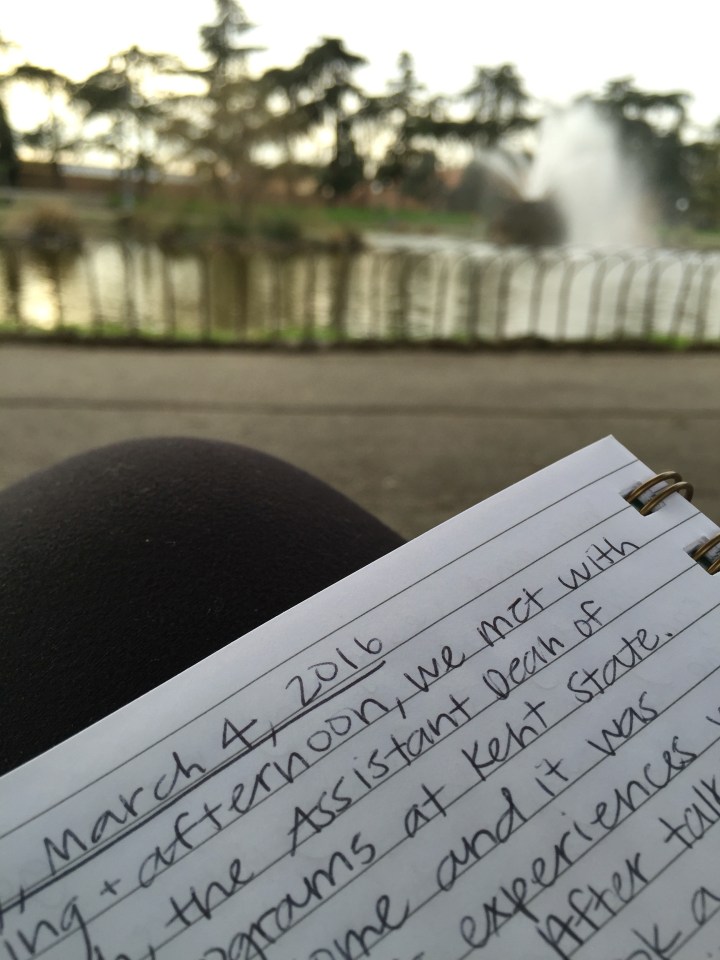 March 4, 2016
ing + afternoon, we met with
the Assistant Dean of
ograms at Kent State.
ome and it was
experiences
After talk
ok a